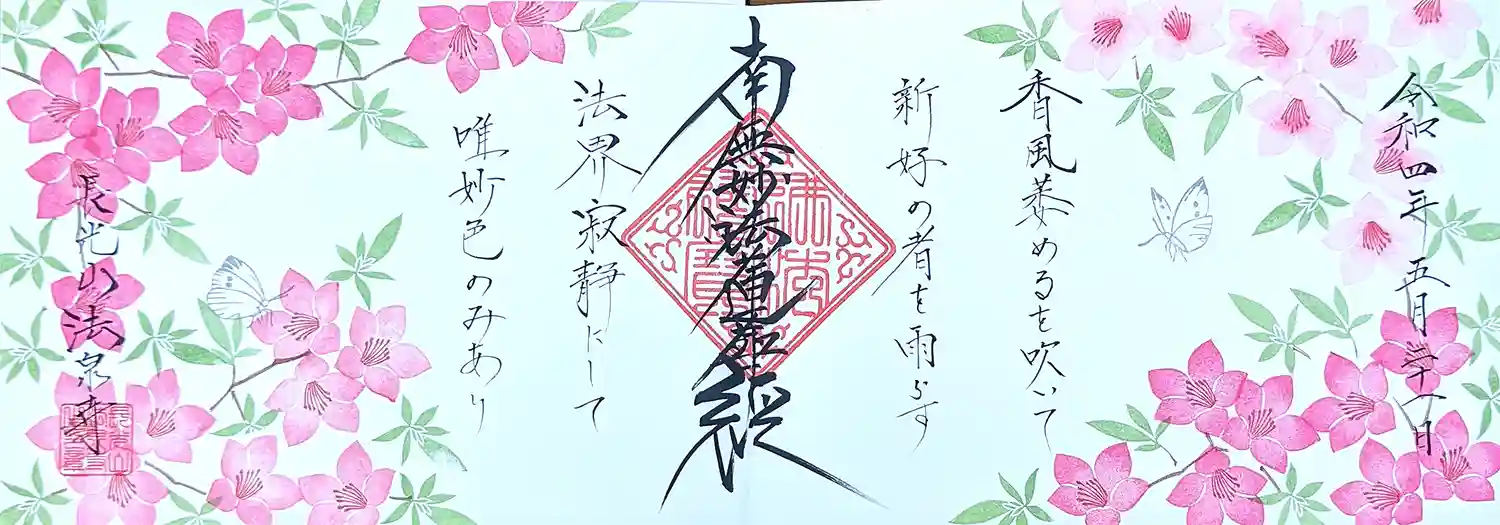 令和四年 五月三十一日
香風萎めるを吹いて
新好の者を雨らす
南無妙法蓮華経
法界寂静にして
唯妙色のみあり
長光山法泉寺